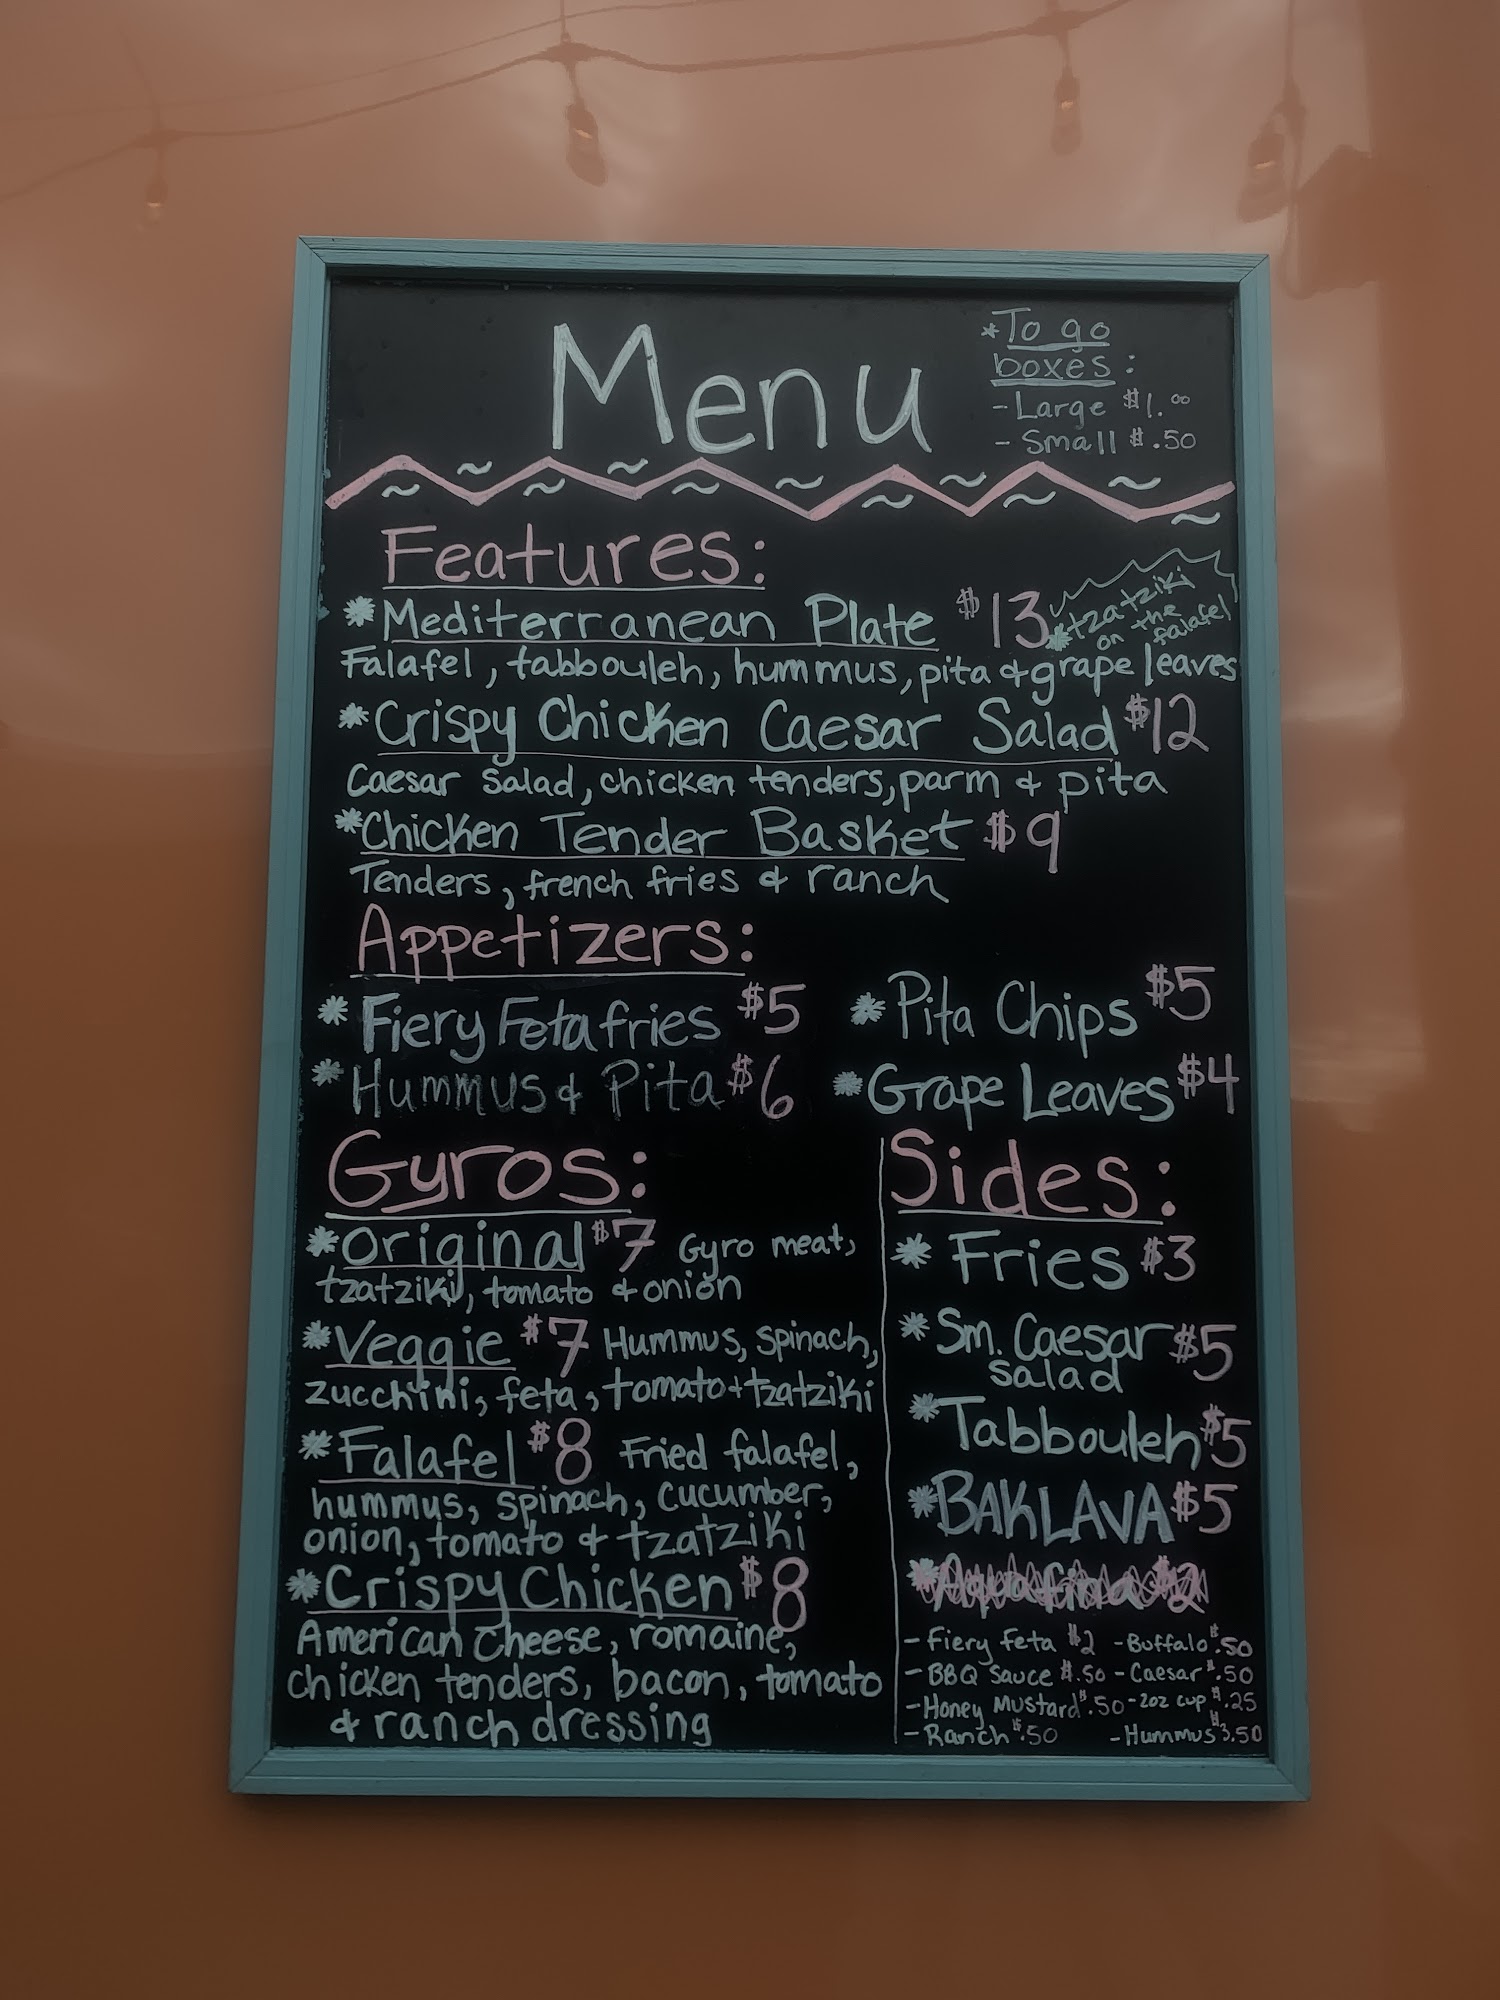 Menu
*To go
boxes:
- Large $1.00
- Small $.50
Features:
*Mediterranean Plate $13
*tzatziki
on the
falafel
Falafel, tabbouleh, hummus, pita & grape leaves
*Crispy Chicken Caesar Salad $12
Caesar Salad, chicken tenders, parm & pita
*Chicken Tender Basket $9
Tenders, french fries & ranch
Appetizers:
*Fiery Feta fries $5
*Pita Chips $5
*Hummus & Pita $6
*Grape Leaves $4
Gyros:
*Original $7 Gyro meat,
tzatziki, tomato & onion
*Veggie $7 Hummus, spinach,
zucchini, feta, tomato + tzatziki
*Falafel $8 Fried falafel,
hummus, spinach, cucumber,
onion, tomato & tzatziki
*Crispy Chicken $8
American cheese, romaine,
chicken tenders, bacon, tomato
& ranch dressing
Sides:
*Fries $3
*Sm. Caesar $5
salad
*Tabbouleh $5
*BAKLAVA $5
*Aquafina $2
- Fiery Feta $2 - Buffalo $.50
- BBQ Sauce $.50 - Caesar $.50
- Honey Mustard $.50 - 2oz cup $.25
- Ranch $.50 - Hummus $3.50